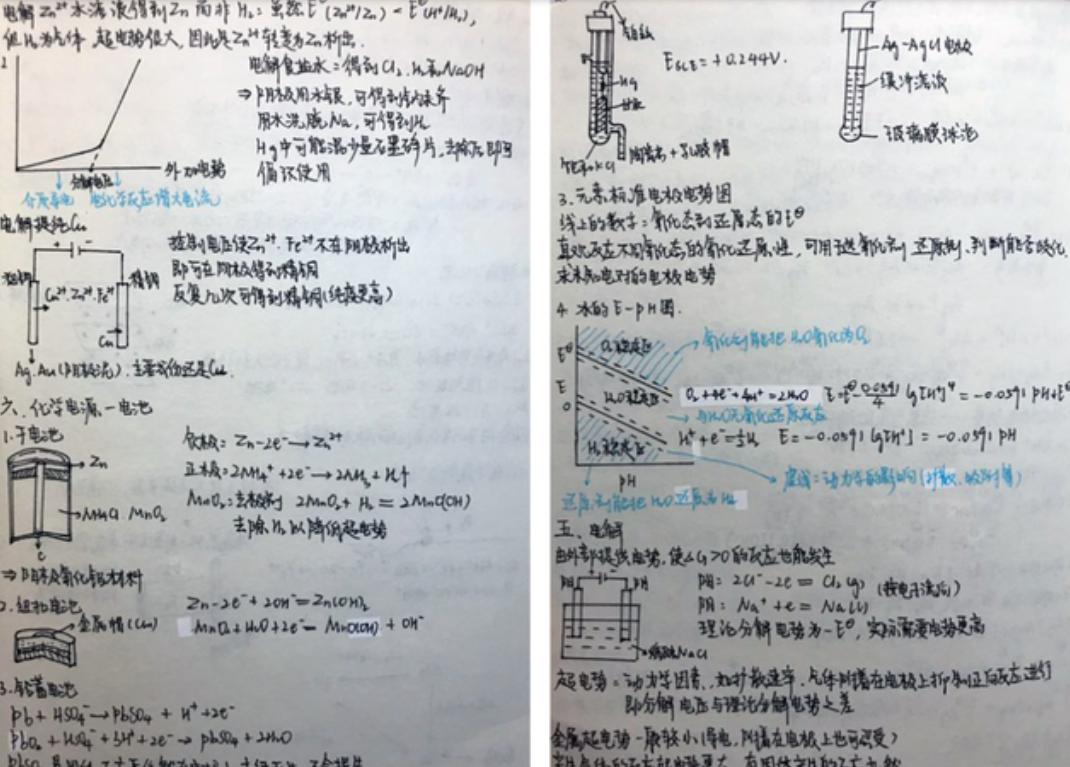 电解Zn²⁺水溶液得到Zn而非H₂：虽然E°(Zn²⁺/Zn) < E°(H⁺/H₂),
但H₂为气体，超电势很大，因此是Zn²⁺转变为Zn析出.
电解食盐水：得到Cl₂、H₂和NaOH
⇒阴极用水银，可得到钠汞齐
用水洗脱Na，可得到H₂
Hg中可能混少量石墨碎片，去除后即可
循环使用
外加电势
分解电压
电化学反应增大电流
电解提纯Cu
+ -
粗铜
精铜
Cu²⁺.Zn²⁺.Fe²⁺
Cu
控制电压使Zn²⁺、Fe²⁺不在阴极析出
即可在阴极得到精铜
反复几次可得到精铜(纯度更高)
Ag.Au(阳极泥).主要成份还是Cu.
六、化学电源—电池
1.干电池
Zn
NH₄Cl.MnO₂
C
负极：Zn-2e⁻→Zn²⁺
正极：2NH₄⁺+2e⁻→2NH₃+H₂↑
MnO₂：去极剂 2MnO₂+H₂=2MnO(OH)
去除H₂以降低超电势
2.纽扣电池
金属帽(Cu)
Zn-2e⁻+2OH⁻=Zn(OH)₂
MnO₂+H₂O+2e⁻=MnO(OH)+OH⁻
3.铅蓄电池
Pb+HSO₄⁻→PbSO₄+H⁺+2e⁻
PbO₂+HSO₄⁻+3H⁺+2e⁻→PbSO₄+2H₂O
E_SCE=+0.244V.
Hg
甘汞
饱和KCl
陶瓷芯+乳胶帽
Ag-AgCl电极
缓冲溶液
玻璃膜球泡
3.元素标准电极电势图
线上的数字：氧化态到还原态的E°
直观反应不同氧化态的氧化还原性，可用于选氧化剂、还原剂、判断能否歧化.
求未知电对的电极电势
4.水的E-pH图.
E°
E
0
O₂稳定区
H₂O稳定区
H₂稳定区
pH
氧化剂能把H₂O氧化为O₂
O₂+4e⁻+4H⁺=2H₂O E=E°-0.0591/4 lg[H⁺]⁴=-0.0591pH+E°
与H₂O无氧化还原反应
H⁺+e⁻=½H₂ E=-0.0591lg[H⁺]=-0.0591pH
还原剂能把H₂O还原为H₂
五、电解
由外部提供电势，使ΔG>0的反应也能发生
阳
阴
熔融NaCl
阳：2Cl⁻-2e=Cl₂(g) (按电子流向)
阴：Na⁺+e=Na(l)
理论分解电势为-E°，实际需要电势更高
超电势：动力学因素，如扩散速率、气体附着在电极上抑制正向反应进行
即分解电压与理论分解电势之差
金属超电势一般较小(导电，附着在电极上也可接受)